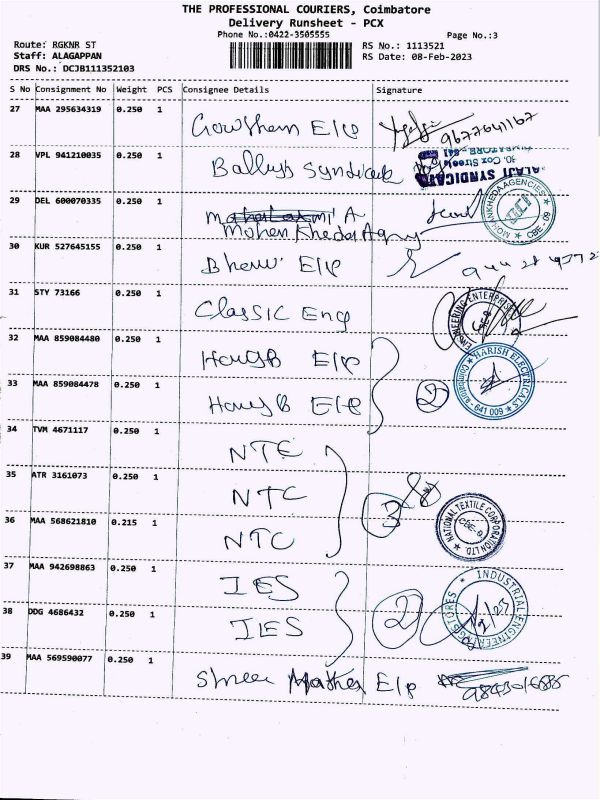 THE PROFESSIONAL COURIERS, Coimbatore
Delivery Runsheet - PCX
Phone No.:0422-3505555
Page No.:3
Route: RGKNR ST
Staff: ALAGAPPAN
DRS No.: DCJB111352103
RS No.: 1113521
RS Date: 08-Feb-2023
S No Consignment No Weight PCS Consignee Details Signature
27 MAA 295634319 0.250 1 Gowshem E/p
28 VPL 941210035 0.250 1 Syndicate
ALAJI SYNDICATE
29 DEL 600070335 0.250 1
Mohen Kheda Agny
MOHANKHEDA AGENCIES CBE-09
30 KUR 527645155 0.250 1 E/p
31 STY 73166 0.250 1 Classic Eng
ENGINEERING ENTERPRISE
32 MAA 859084480 0.250 1 E/p
33 MAA 859084478 0.250 1 E/p 2
HARISH ELECTRICALS Coimbatore - 641 009
34 TVM 4671117 0.250 1 NTC
35 ATR 3161073 0.250 1 NTC 3
36 MAA 568621810 0.215 1 NTC
NATIONAL TEXTILE CORPORATION LTD. CBE-9
37 MAA 942698863 0.250 1 IES
38 DDG 4686432 0.250 1 IES 2
INDUSTRIAL ENGINEER STORES
39 MAA 569590077 0.250 1 Shree E/p